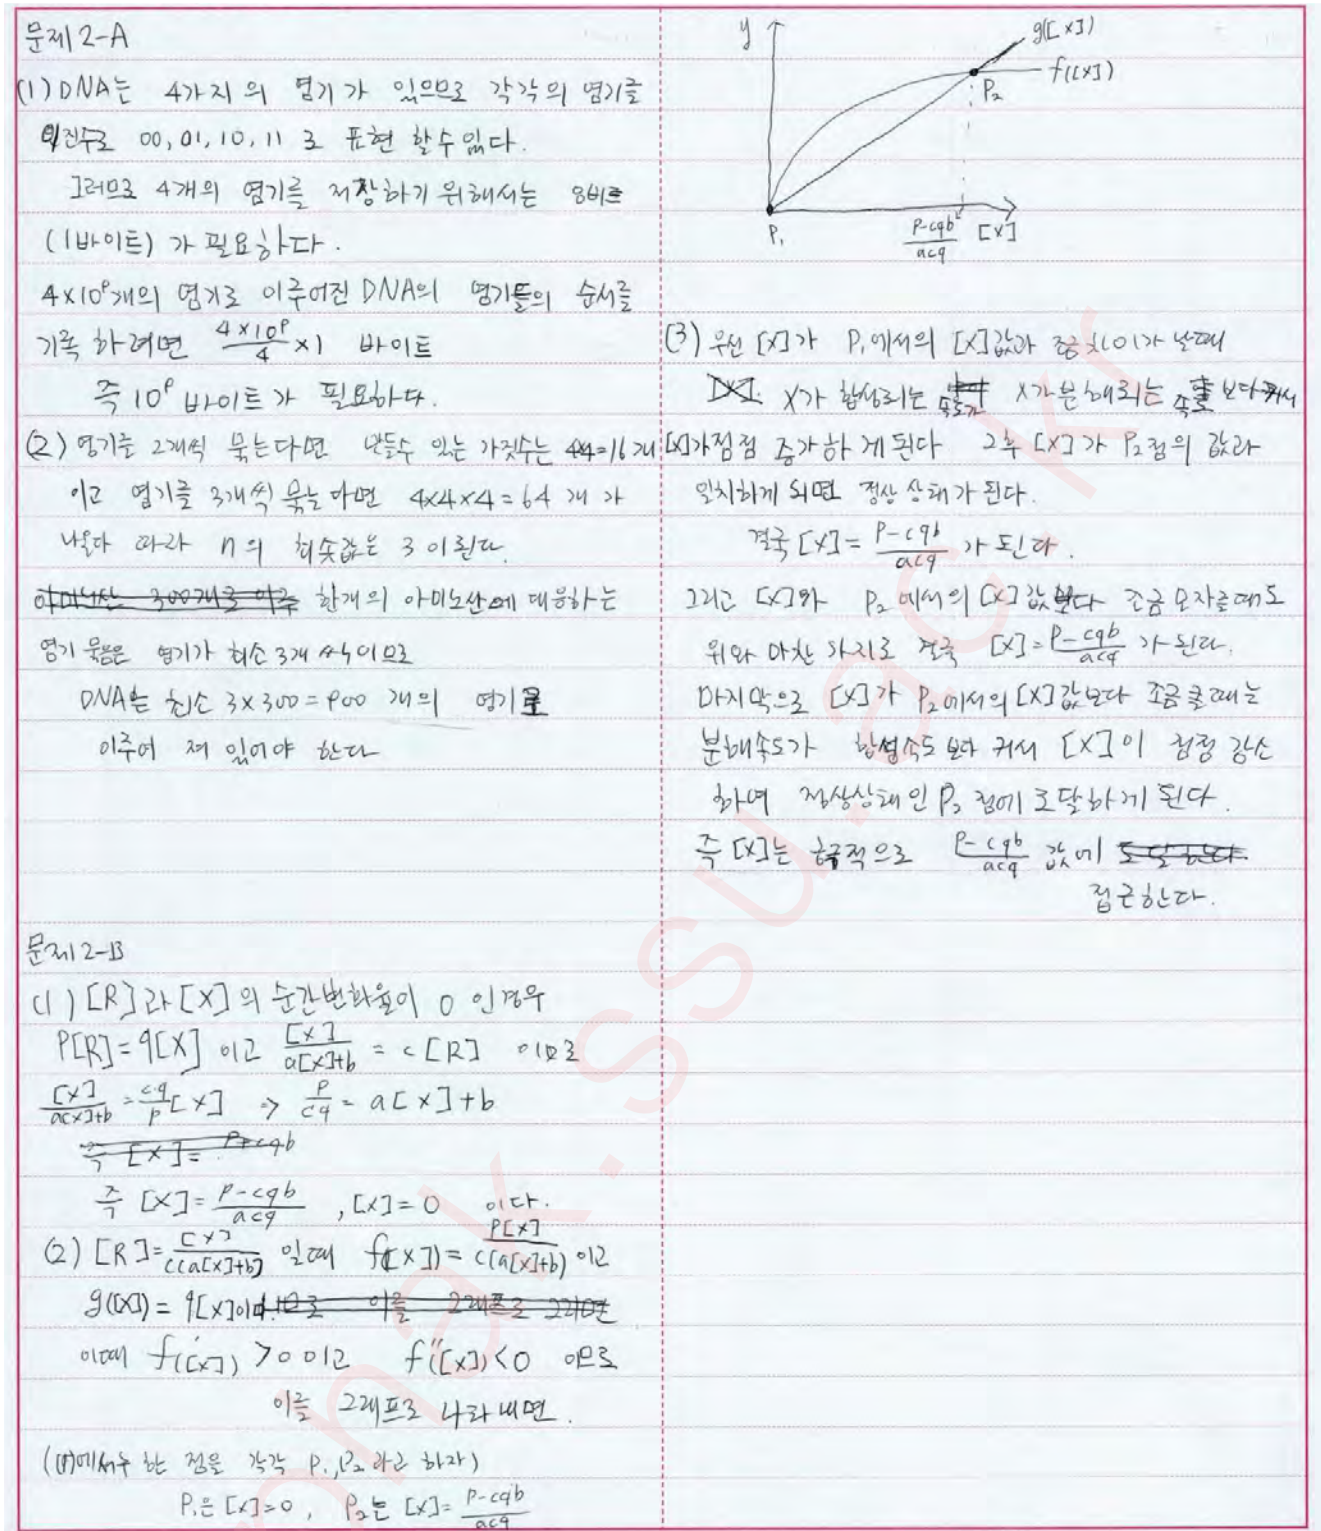 문제 2-A
(1) DNA는 4가지의 염기가 있으므로 각각의 염기를
이진수로 00, 01, 10, 11 로 표현 할수있다.
그러므로 4개의 염기를 저장하기 위해서는 8비트
(1바이트) 가 필요하다.
4×10⁹개의 염기로 이루어진 DNA의 염기들의 순서를
기록 하려면 4×10⁹/4 ×1 바이트
즉 10⁹ 바이트가 필요하다.
(2) 염기를 2개씩 묶는다면 만들수 있는 가짓수는 4×4=16개
이고 염기를 3개씩 묶는다면 4×4×4=64 개가
나온다 따라 n의 최솟값은 3 이된다.
한개의 아미노산에 대응하는
염기 묶음은 염기가 최소 3개 씩이므로
DNA는 최소 3×300=900 개의 염기로
이루어 져 있어야 한다
문제 2-B
(1) [R]과 [X]의 순간변화율이 0 인경우
P[R]=q[X] 이고 [X]/(a[X]+b) = c[R] 이므로
[X]/(a[X]+b) = cq/p [X] → p/cq = a[X]+b
즉 [X]= (p-cqb)/acq , [X]=0 이다.
(2) [R]= [X]/(c(a[X]+b)) 일때 f([X]) = P[X]/(c(a[X]+b)) 이고
g([X]) = q[X]이다.
이때 f'([X]) >0 이고 f''([X])<0 이므로
이를 그래프로 나타내면.
((1)에서구한 점을 각각 P₁, P₂ 라고 하자)
P₁은 [X]=0, P₂는 [X]= (p-cqb)/acq
y
g([X])
f([X])
P₂
P₁
(p-cqb)/acq [X]
(3) 우선 [X]가 P₁에서의 [X]값과 조금 차이가 날때
X가 합성되는 속도가 X가분해되는 속도보다 커서
[X]가점점 증가하게된다 그후 [X]가 P₂점의 값과
일치하게 되면 정상 상태가 된다.
결국 [X]= (p-cqb)/acq 가 된다.
그리고 [X]와 P₂에서의 [X]값보다 조금 모자를때도
위와 마찬가지로 결국 [X]= (p-cqb)/acq 가 된다.
마지막으로 [X]가 P₂에서의 [X]값보다 조금클때는
분해속도가 합성속도보다 커서 [X]이 점점 감소
하며 정상상태인 P₂ 점에 도달하게 된다.
즉 [X]는 궁극적으로 (p-cqb)/acq 값에
접근한다.